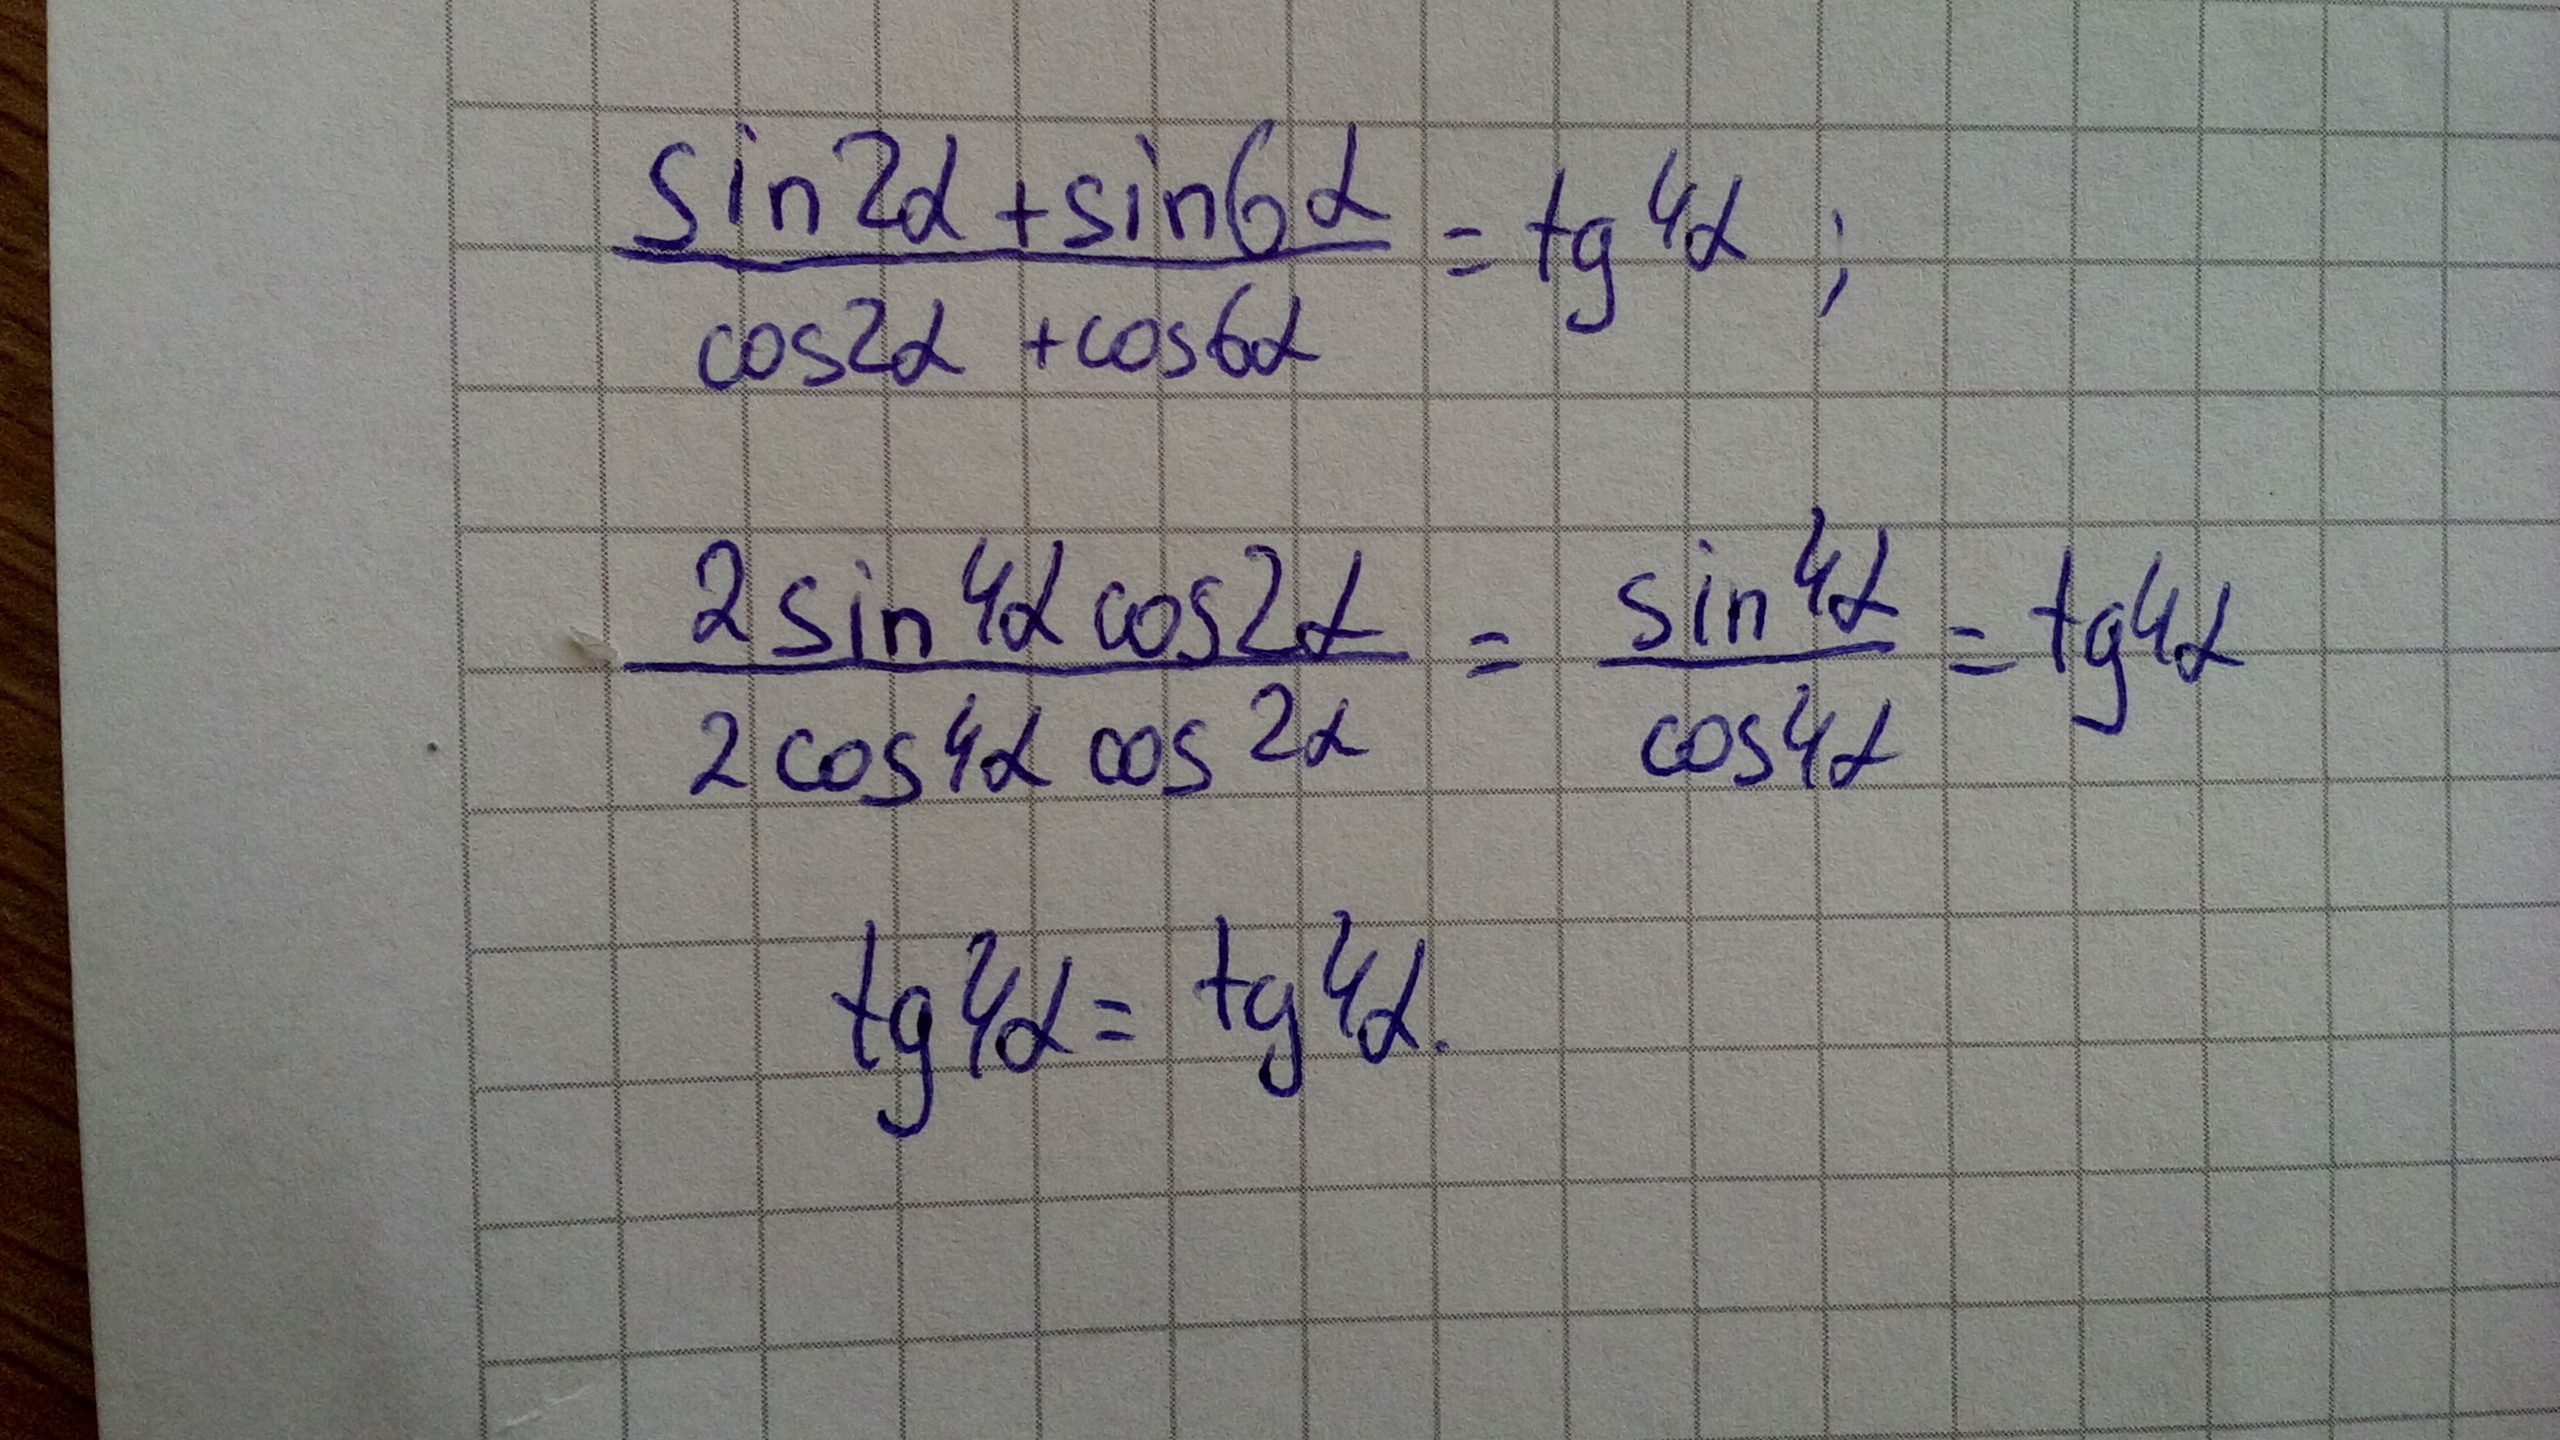 sin2α + sin6α / cos2α + cos6α = tg4α ;
2sin4α cos2α / 2cos4α cos2α = sin4α / cos4α = tg4α
tg4α = tg4α.